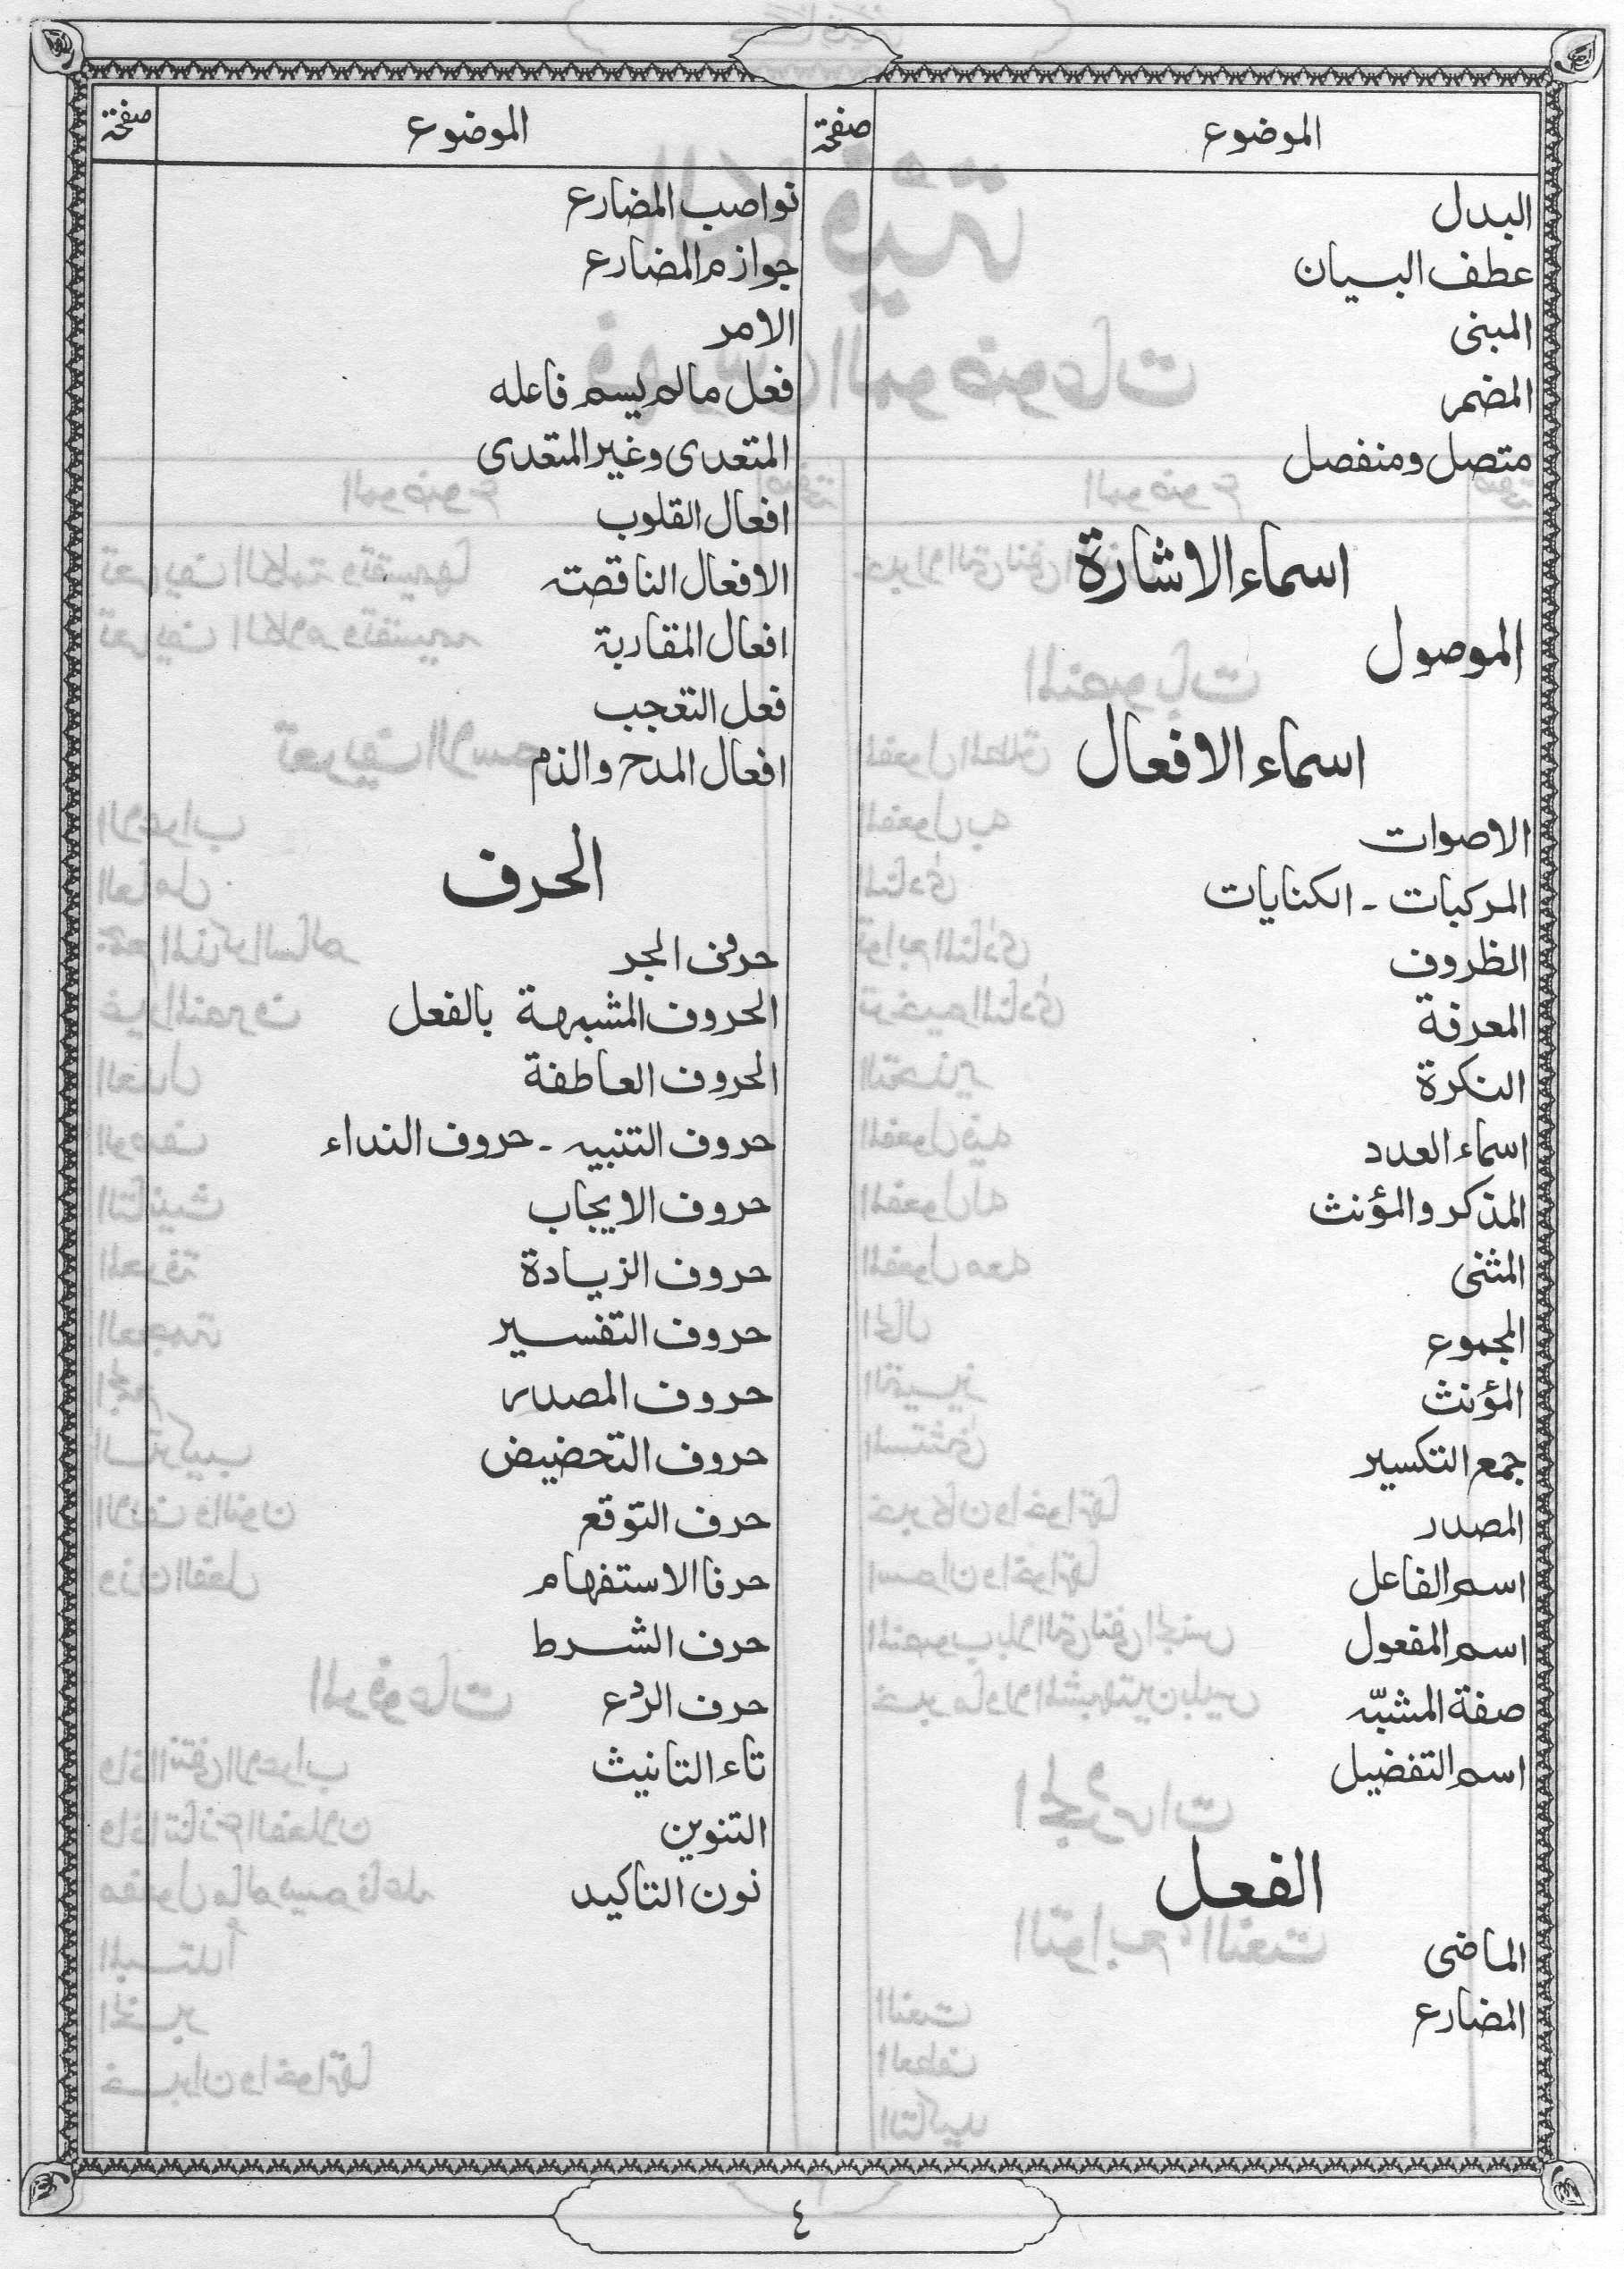 الموضوع
صفحة
البدل
عطف البيان
المبنى
المضمر
متصل ومنفصل
اسماء الاشارة
الموصول
اسماء الافعال
الاصوات
المركبات - الكنايات
الظروف
المعرفة
النكرة
اسماء العدد
المذكر والمؤنث
المثنى
المجموع
المؤنث
جمع التكسير
المصدر
اسم الفاعل
اسم المفعول
صفة المشبّه
اسم التفضيل
الفعل
الماضى
المضارع
الموضوع
صفحة
نواصب المضارع
جوازم المضارع
الامر
فعل مالم يسم فاعله
المتعدى وغير المتعدى
افعال القلوب
الافعال الناقصته
افعال المقاربة
فعل التعجب
افعال المدح والذم
الحرف
الجر
الحروف المشبهة بالفعل
الحروف العاطفة
حروف التنبيه - حروف النداء
حروف الايجاب
حروف الزيادة
حروف التفسير
حروف المصدر
حروف التحضيض
حرف التوقع
حرفا الاستفهام
حرف الشرط
حرف الردع
تاء التانيث
التنوين
نون التاكيد
٤